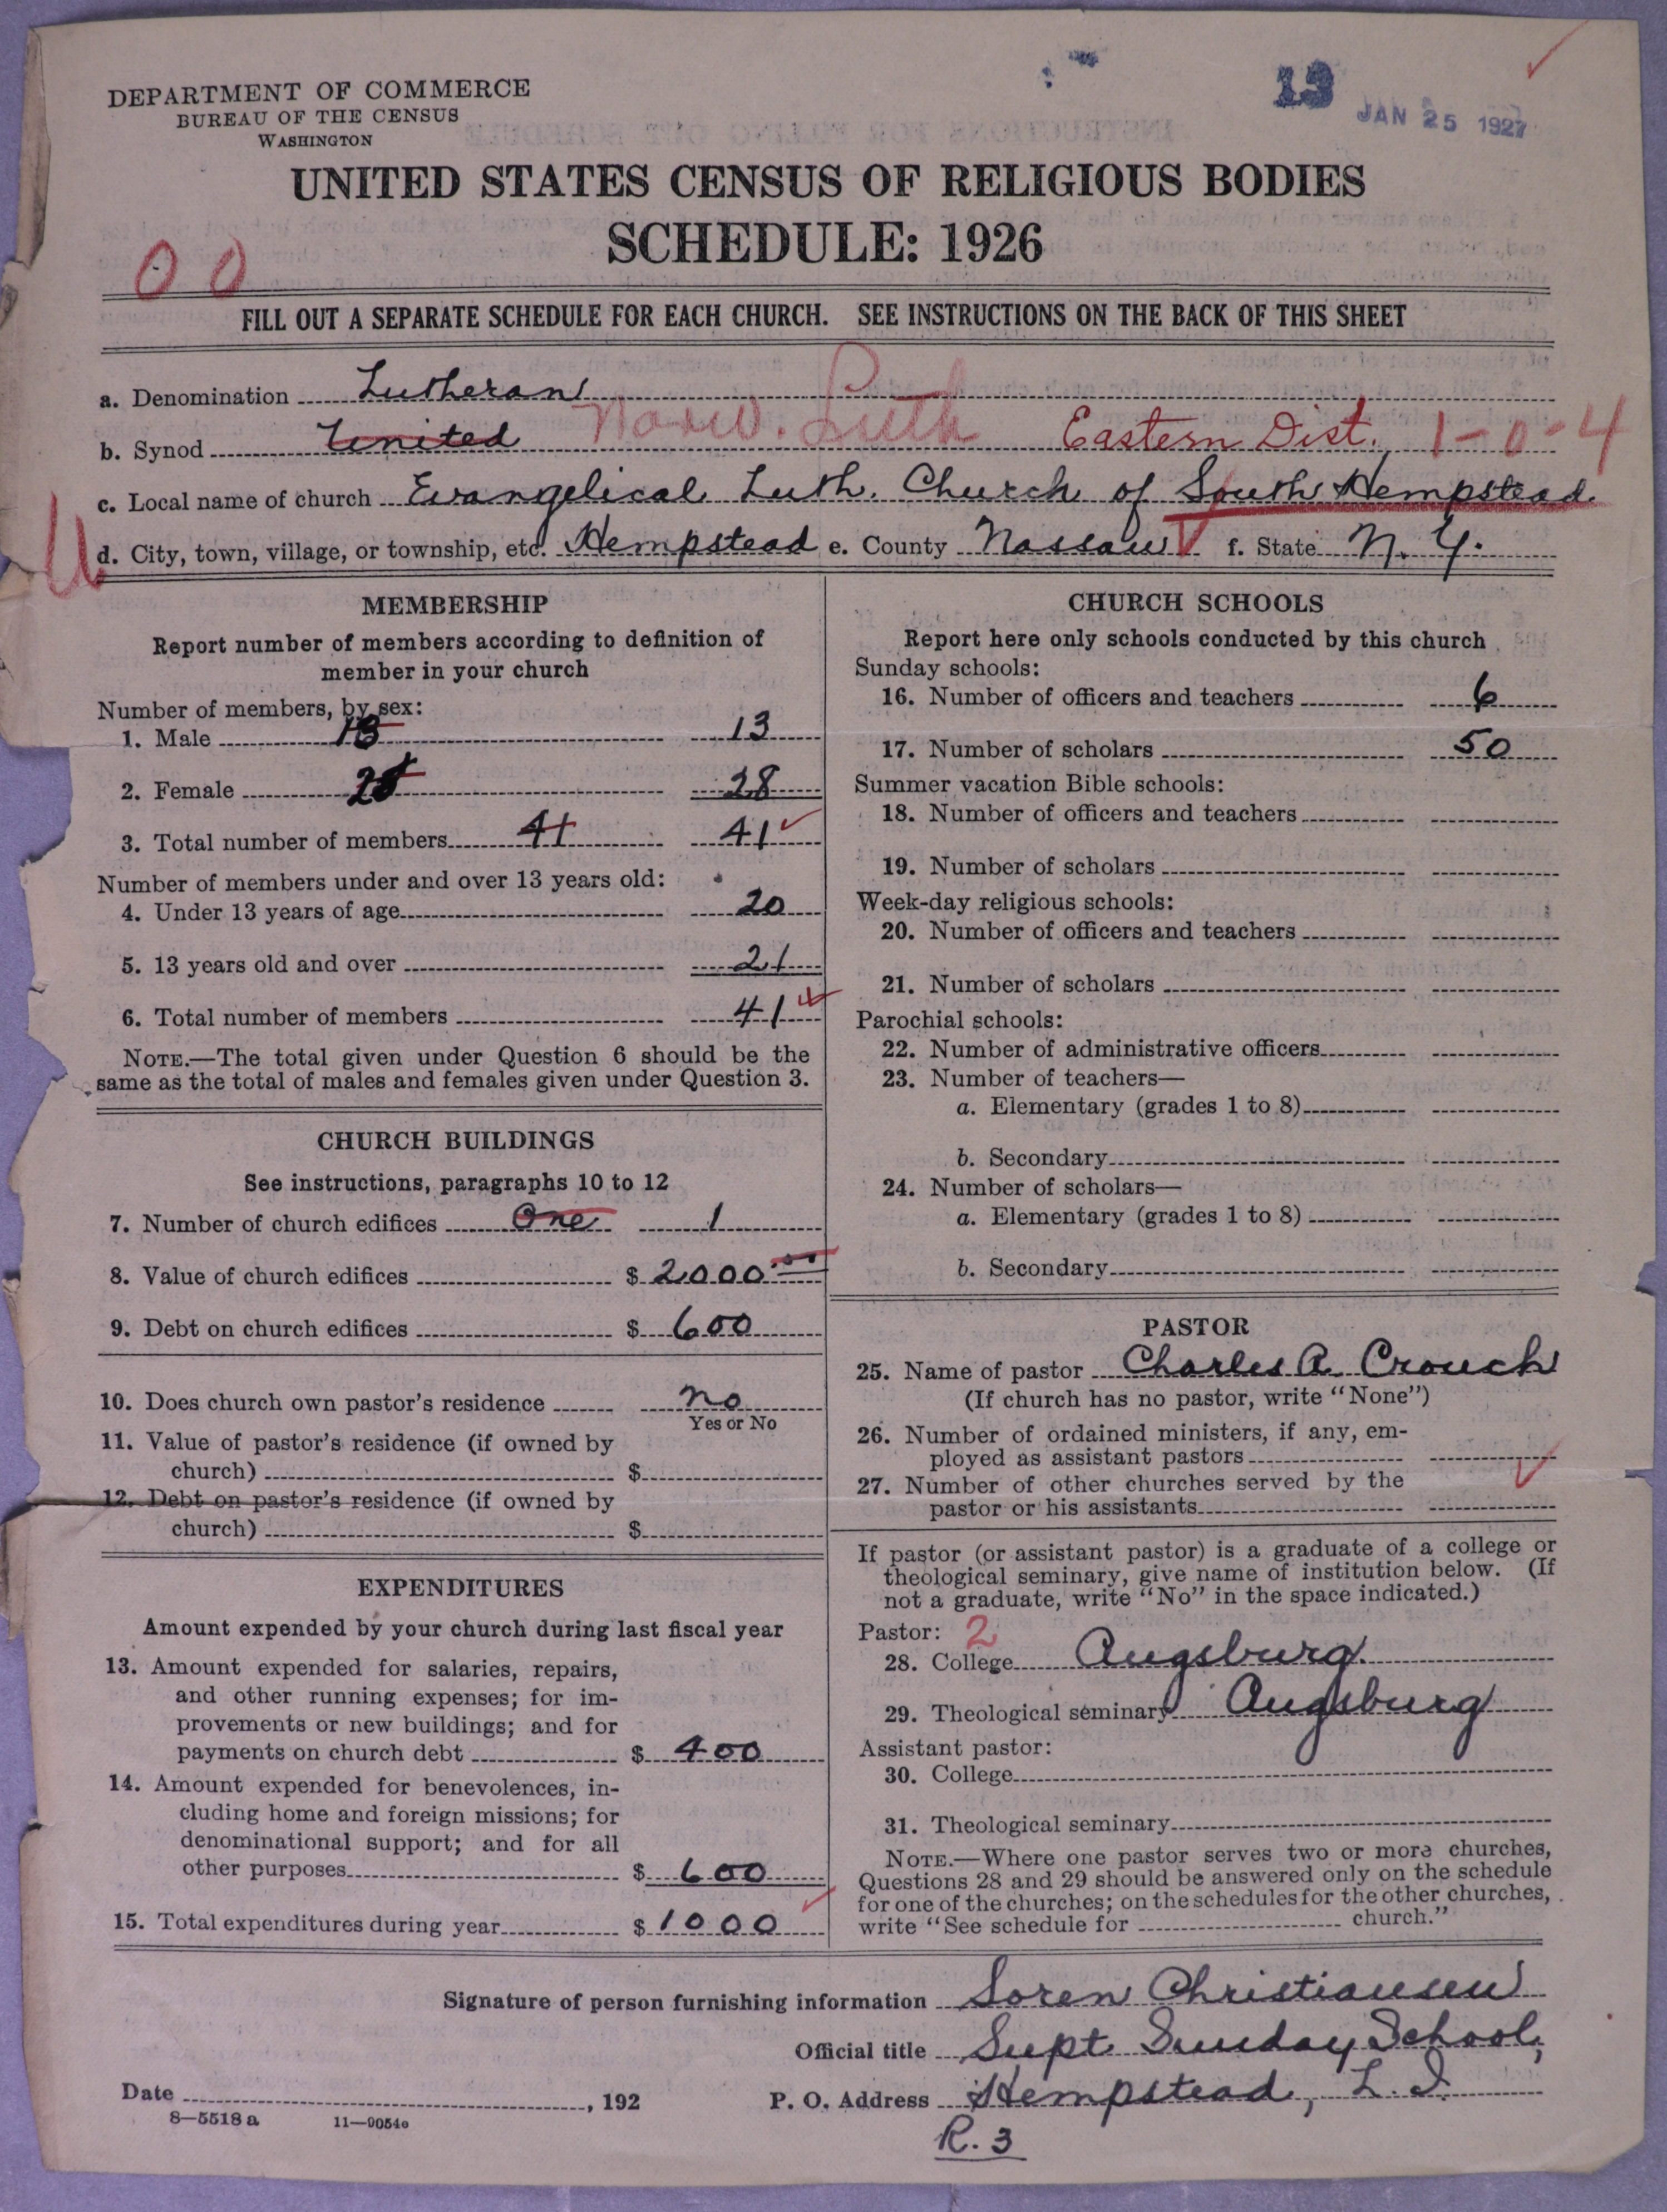 13
JAN 25 1927
DEPARTMENT OF COMMERCE
BUREAU OF THE CENSUS
WASHINGTON
UNITED STATES CENSUS OF RELIGIOUS BODIES
SCHEDULE: 1926
00
FILL OUT A SEPARATE SCHEDULE FOR EACH CHURCH. SEE INSTRUCTIONS ON THE BACK OF THIS SHEET
a. Denomination Lutheran
b. Synod United Norw. Luth Eastern Dist. 1-0-4
c. Local name of church Evangelical Luth. Church of South Hempstead
d. City, town, village, or township, etc. Hempstead e. County Nassau f. State N. Y.
MEMBERSHIP
Report number of members according to definition of
member in your church
Number of members, by sex:
1. Male 13 13
2. Female 28 28
3. Total number of members 41 41
Number of members under and over 13 years old:
4. Under 13 years of age 20
5. 13 years old and over 21
6. Total number of members 41
NOTE.—The total given under Question 6 should be the
same as the total of males and females given under Question 3.
CHURCH BUILDINGS
See instructions, paragraphs 10 to 12
7. Number of church edifices One 1
8. Value of church edifices $ 2000.00
9. Debt on church edifices $ 600
10. Does church own pastor's residence no
Yes or No
11. Value of pastor's residence (if owned by
church) $
12. Debt on pastor's residence (if owned by
church) $
EXPENDITURES
Amount expended by your church during last fiscal year
13. Amount expended for salaries, repairs,
and other running expenses; for im-
provements or new buildings; and for
payments on church debt $ 400
14. Amount expended for benevolences, in-
cluding home and foreign missions; for
denominational support; and for all
other purposes $ 600
15. Total expenditures during year $ 1000
CHURCH SCHOOLS
Report here only schools conducted by this church
Sunday schools:
16. Number of officers and teachers 6
17. Number of scholars 50
Summer vacation Bible schools:
18. Number of officers and teachers
19. Number of scholars
Week-day religious schools:
20. Number of officers and teachers
21. Number of scholars
Parochial schools:
22. Number of administrative officers
23. Number of teachers—
a. Elementary (grades 1 to 8)
b. Secondary
24. Number of scholars—
a. Elementary (grades 1 to 8)
b. Secondary
PASTOR
25. Name of pastor Charles A. Crouch
(If church has no pastor, write "None")
26. Number of ordained ministers, if any, em-
ployed as assistant pastors
27. Number of other churches served by the
pastor or his assistants
If pastor (or assistant pastor) is a graduate of a college or
theological seminary, give name of institution below. (If
not a graduate, write "No" in the space indicated.)
Pastor: 2
28. College Augsburg.
29. Theological seminary Augsburg
Assistant pastor:
30. College
31. Theological seminary
NOTE.—Where one pastor serves two or more churches,
Questions 28 and 29 should be answered only on the schedule
for one of the churches; on the schedules for the other churches,
write "See schedule for church."
Signature of person furnishing information Soren Christiansen
Official title Supt. Sunday School,
Date , 192 P. O. Address Hempstead, L. I.
8—5518 a 11—9054e
R. 3